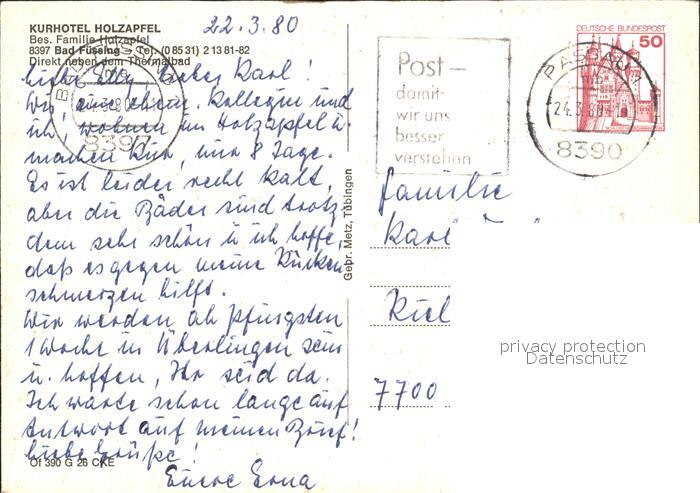 KURHOTEL HOLZAPFEL
Bes. Familie Holzapfel
8397 Bad Füssing – Tel. (0 85 31) 2 13 81-82
Direkt neben dem Thermalbad
22.3.80
Liebe Elly, lieber Karl!
Wir, eine ehem. Kollegin und
ich, wohnen im Holzapfel u.
machen Kur, nur 8 Tage.
Es ist leider recht kalt,
aber die Bäder sind trotz
dem sehr schön u. ich hoffe,
daß es gegen meine Rücken
schmerzen hilft.
Wir werden ab Pfingsten
1 Woche in Überlingen sein
u. hoffen, Ihr seid da.
Ich warte schon lange auf
Antwort auf meinen Brief!
Liebe Grüße!
Eure Erna
Of 390 G 26 CKE
Gebr. Metz, Tübingen
8397
Post-
damit
wir uns
besser
verstehen
DEUTSCHE BUNDESPOST
50
PASSAU 1
mb
24.3.80
8390
Familie
Karl
Kiel
7700
privacy protection
Datenschutz